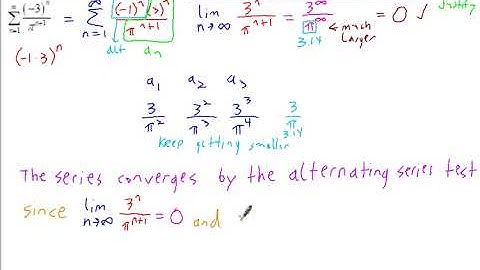 ∑_{n=1}^{∞} (-3)^n / π^{n+1} = ∑_{n=1}^{∞} (-1)^n (3)^n / π^{n+1}   lim_{n→∞} 3^n / π^{n+1} = 3^∞ / π^∞ = 0 ✓ Justify
alt   an   3.14 ← much larger
(-1·3)^n
a₁ a₂ a₃
3/π² 3²/π³ 3³/π⁴ 3/π 3.14
keep getting smaller
The series converges by the alternating series test
since lim_{n→∞} 3^n / π^{n+1} = 0 and